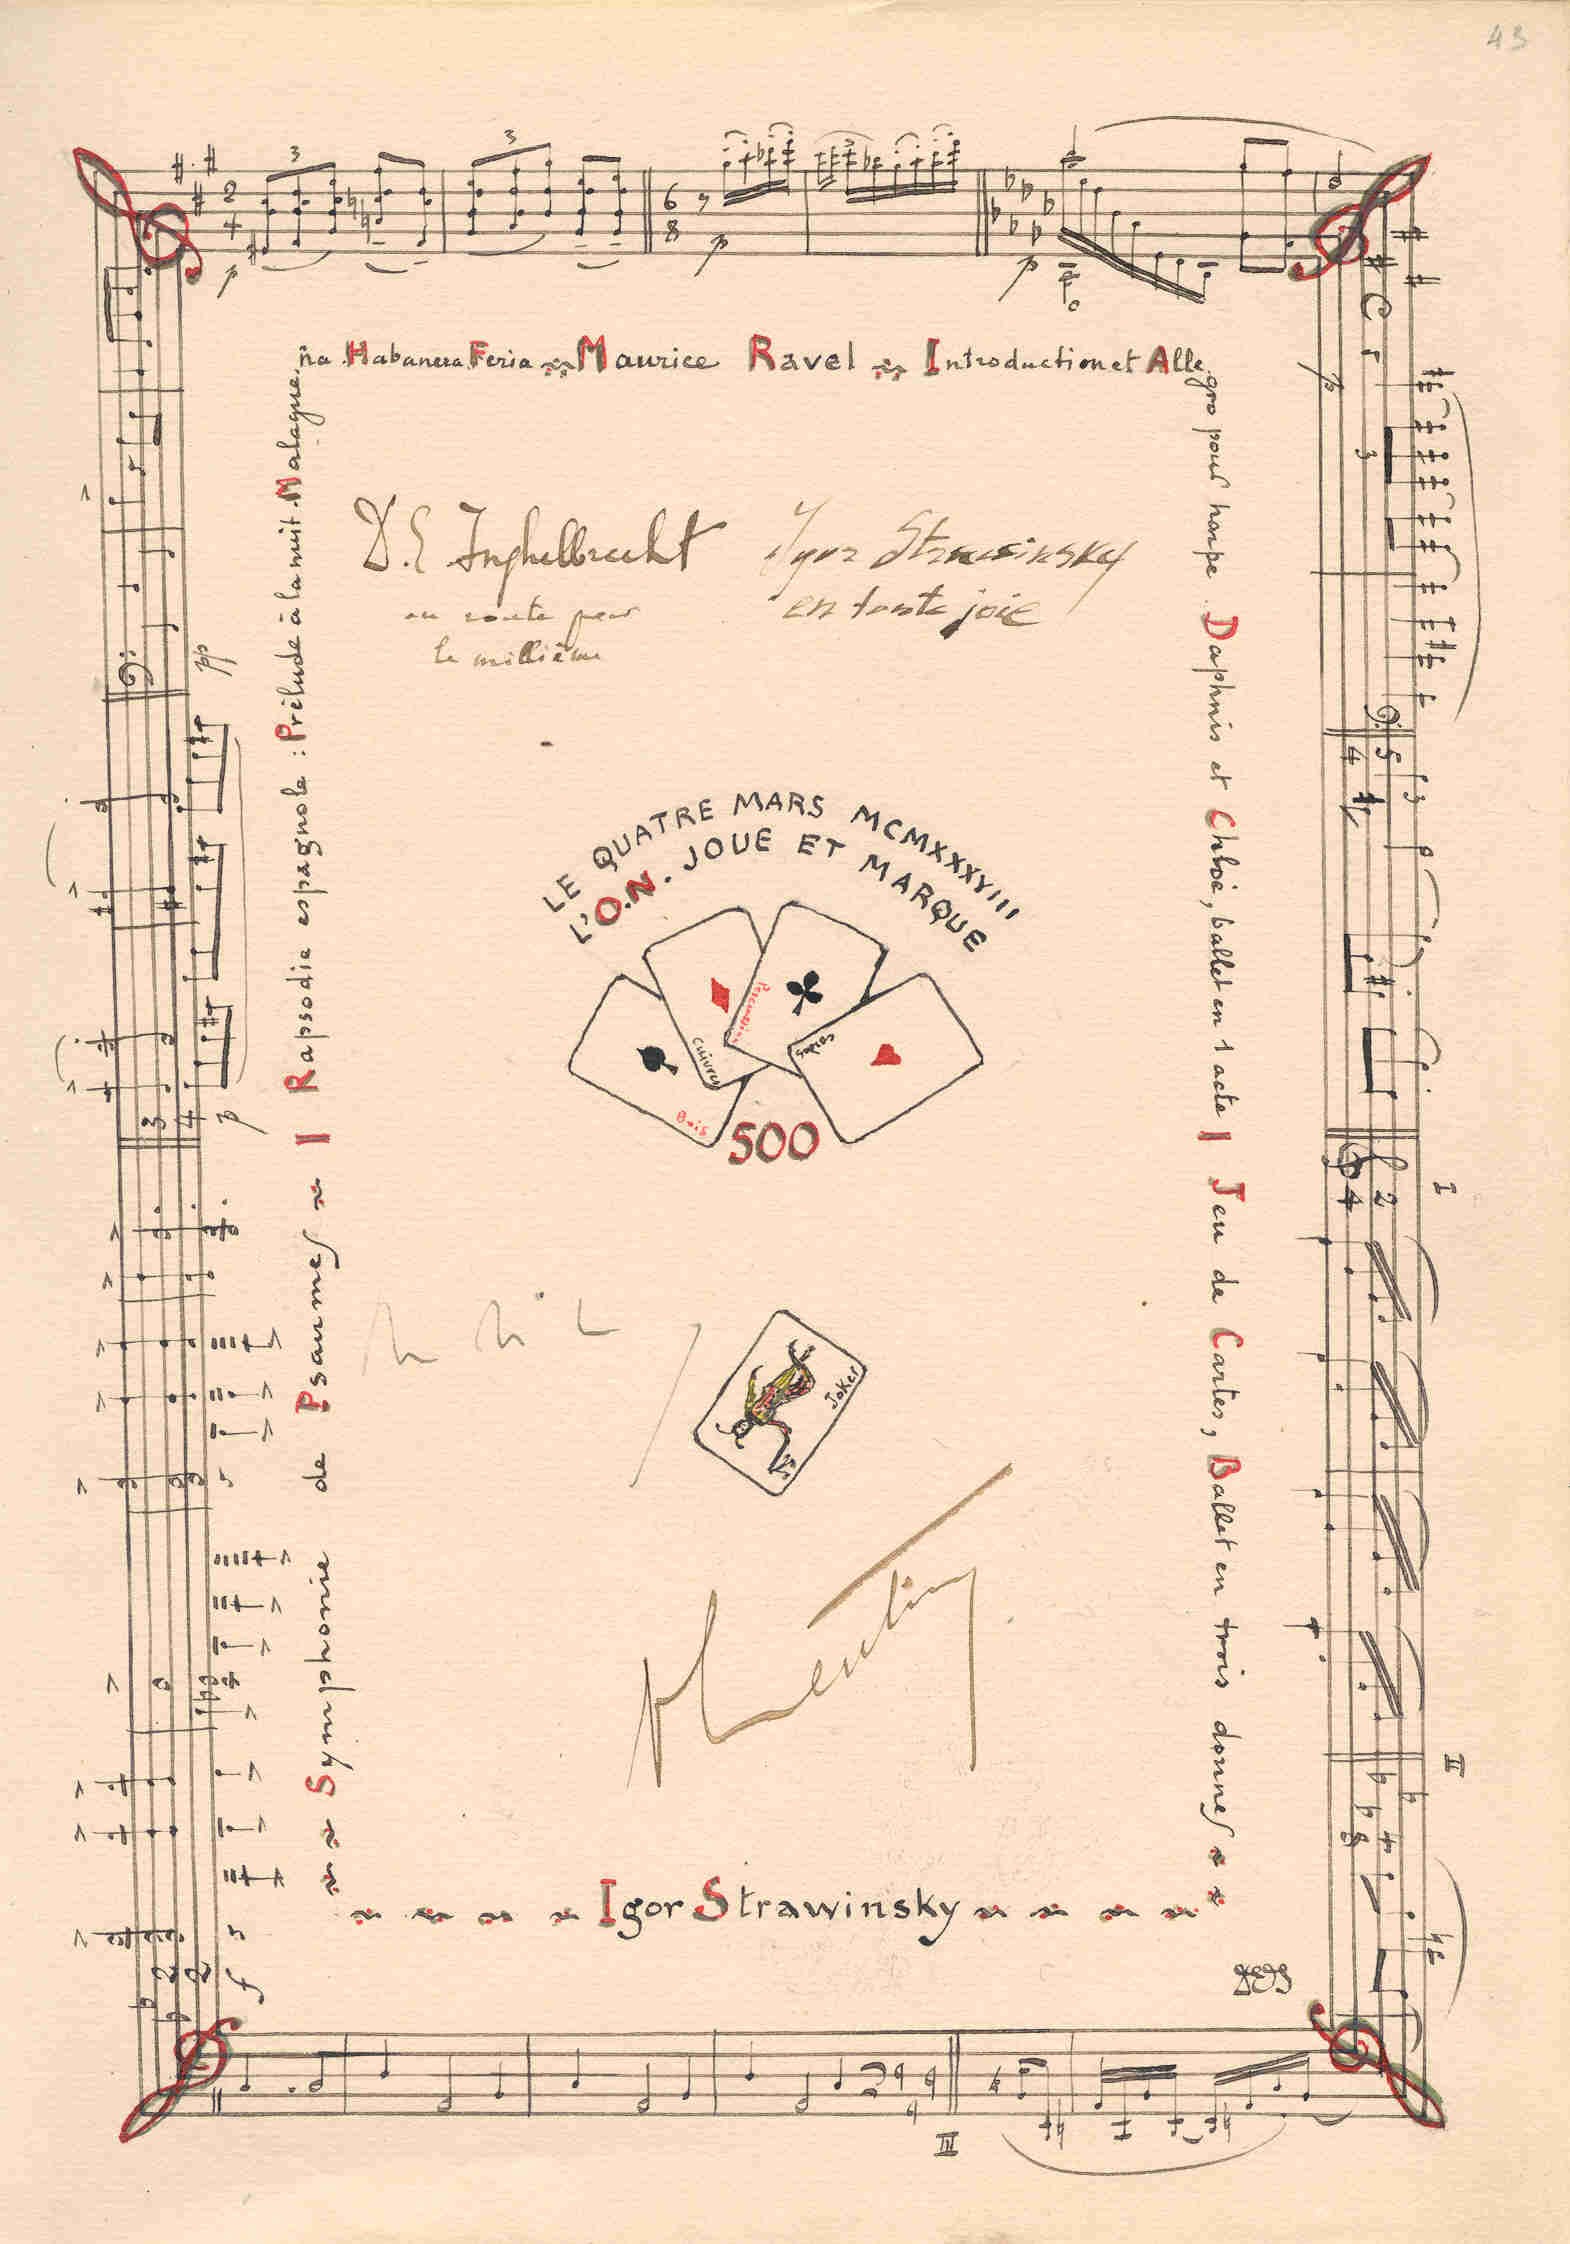 43
Rapsodie espagnole : Prélude à la nuit. Malagueña. Habanera Feria Maurice Ravel Introduction et Allegro pour harpe. Daphnis et Chloé, ballet en 1 acte
D. E. Inghelbrecht
en route pour
le millième
Igor Strawinsky
en toute joie
LE QUATRE MARS MCMXXXVIII
L'O.N. JOUE ET MARQUE
Bois
Cuivres
Percussions
500
Joker
Symphonie de Psaumes
Jeu de Cartes, Ballet en trois donnes
Igor Strawinsky
I
II
III